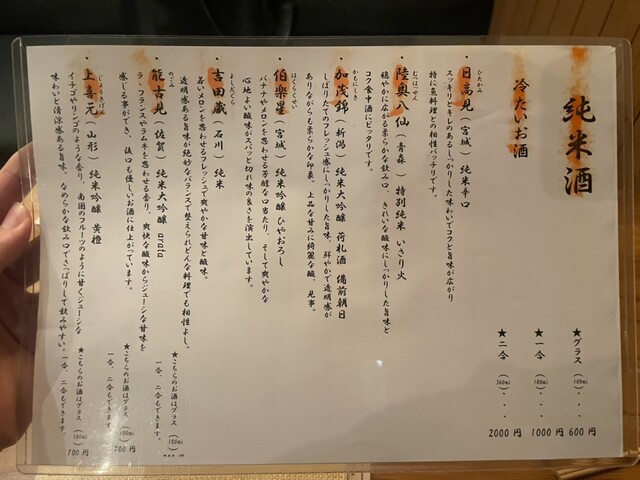 純米酒
★グラス (100ml)・・・ 600 円
★一合 (180ml)・・・ 1000 円
★二合 (360ml)・・・ 2000 円
冷たいお酒
・日高見(宮城)純米辛口
ひたかみ
スッキリとキレのあるしっかりした味わいでコクと旨味が広がり
特に魚料理との相性バッチリです。
・陸奥八仙(青森)特別純米 いさり火
むつはっせん
穏やかに広がる柔らかな飲み口、きれいな酸味にしっかりした旨味と
コク食中酒にピッタリです。
・加茂錦(新潟)純米大吟醸 荷札酒 備前朝日
かもにしき
しぼりたてのフレッシュな感じにしっかりした旨味、鮮やかで透明感が
ありながらも柔らかな印象、上品な甘みに綺麗な酸、見事。
・伯楽星(宮城)純米吟醸 ひやおろし
はくらくせい
バナナやメロンを思わせる芳醇な口当たり、そして爽やかな
心地よい酸味がスパッと切れ味の良さを演出しています。
・吉田蔵(石川)純米
よしだぐら
若いメロンを思わせるフレッシュで爽やかな甘味と酸味。
透明感ある旨味が絶妙なバランスで整えられどんな料理でも相性よし。
・能古見(佐賀)純米大吟醸 arata
のごみ
ラ・フランスやラムネを思わせる香り、爽快な酸味からジューシーな甘味を
感じる事ができ、後口も優しいお酒に仕上がっています。
★こちらのお酒はグラス(100ml)700 円
一合、二合もできます。
・上喜元(山形)純米吟醸 黄橙
じょうきげん
イチゴやリンゴのような香り、南国のフルーツのように甘くジューシーな
味わいと清涼感ある旨味、なめらかな飲み口でさっぱりして飲みやすい。
★こちらのお酒はグラス(100ml)700 円
一合、二合もできます。